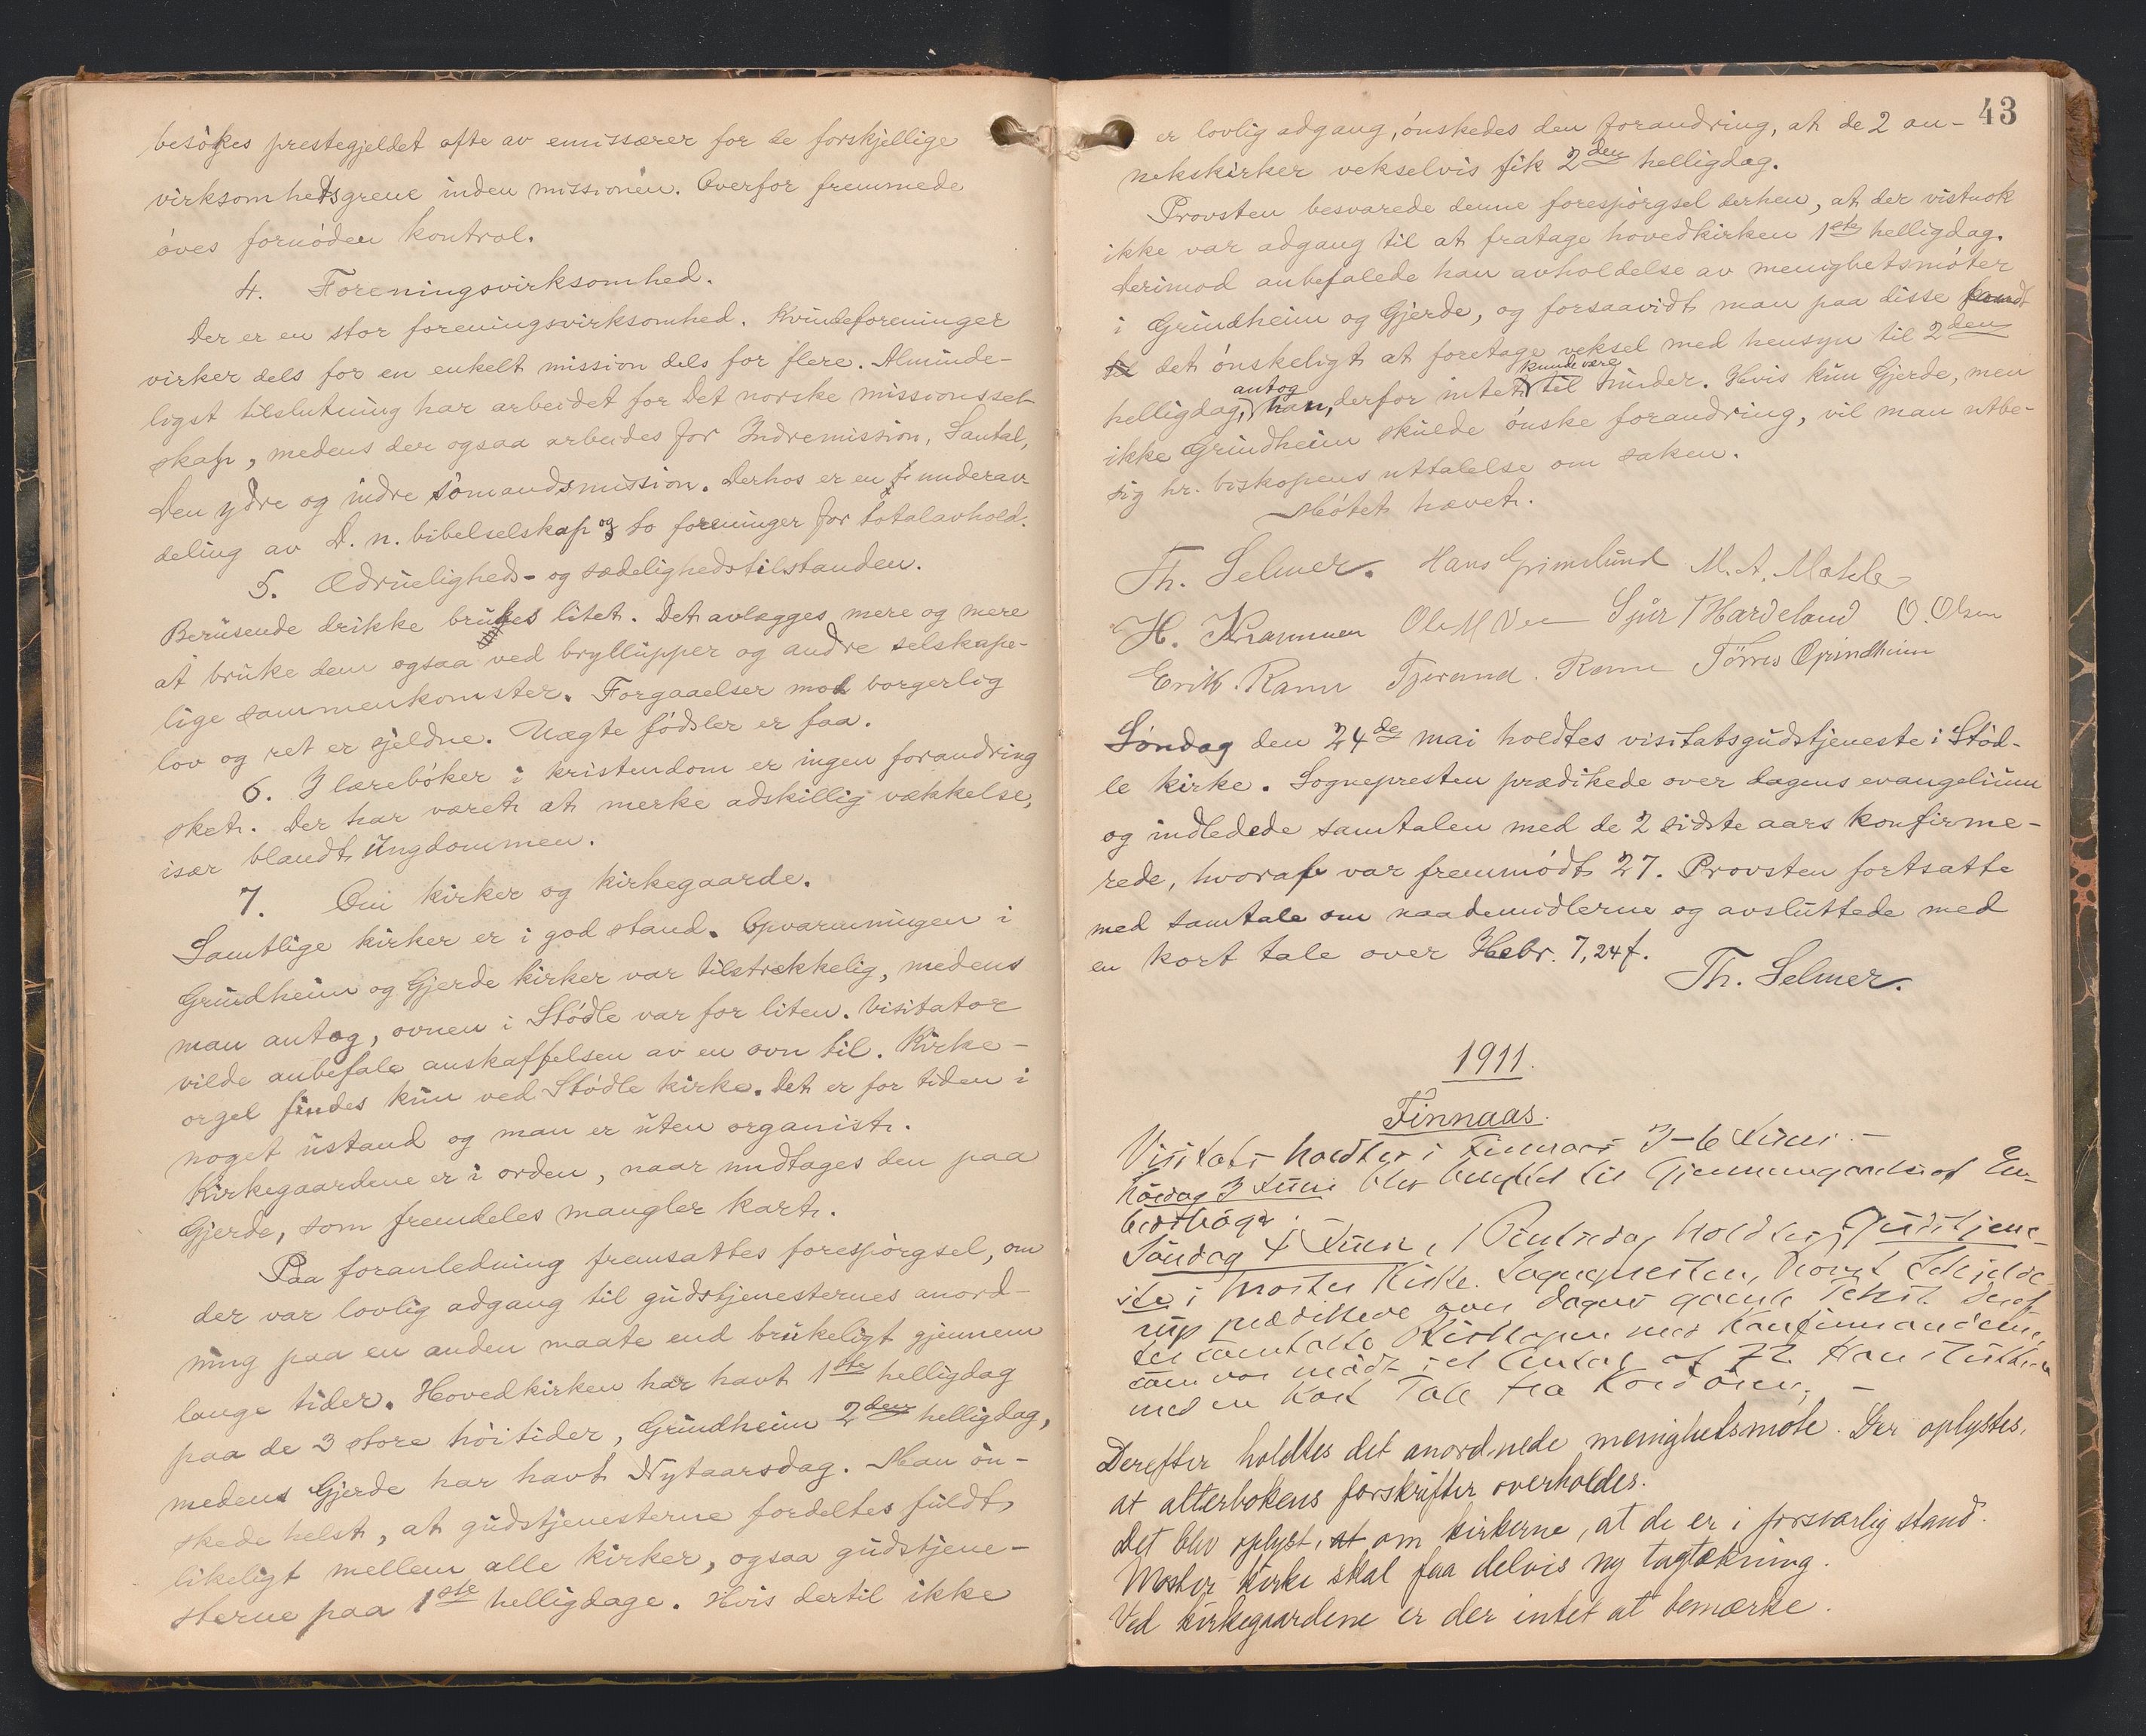 besökes prestegjeldet ofte av emissærer for de forskjellige
virksomhetsgrene inden missionen. Overfor fremmede
öves fornöden kontrol.
4. Foreningsvirksomhed.
Der er en stor foreningsvirksomhed. Kvindeforeninger
virker dels for en enkelt mission dels for flere. Alminde-
ligst tilslutning har arbeidet for Det norske missionssel-
skap, medens der ogsaa arbeides for Indremission, Santal,
Den ydre og indre sömandsmission. Derhos er en underav
deling av D. n. bibelselskap og to foreninger for totalavhold.
5. Ædrueligheds- og sædelighedstilstanden.
Berusende drikke brukes litet. Det avlægges mere og mere
at bruke dem ogsaa ved bryllupper og andre selskape-
lige sammenkomster. Forgaaelser mod borgerlig
lov og ret er sjeldne. Uægte födsler er faa.
6. I læreböker i kristendom er ingen forandring
sket. Der har været at merke adskillig vækkelse,
især blandt ungdommen.
7. Om kirker og kirkegaarde.
Samtlige kirker er i god stand. Opvarmningen i
Grindheim og Gjerde kirker var tilstrækkelig, medens
man antog, ovnen i Stödle var for liten. Visitator
vilde anbefale anskaffelsen av en ovn til. Kirke-
orgel findes kun ved Stödle kirke. Det er for tiden i
noget ustand og man er uten organist.
Kirkegaardene er i orden, naar undtages den paa
Gjerde, som fremdeles mangler kart.
Paa foranledning fremsattes forespörgsel, om
der var lovlig adgang til gudstjenesternes anord-
ning paa en anden maate end brukeligt gjennem
lange tider. Hovedkirken har havt 1ste helligdag
paa de 3 store höitider, Grindheim 2den helligdag,
medens Gjerde har havt Nytaarsdag. Man ön-
skede helst, at gudstjenesterne fordeltes fuldt
likeligt mellem alle kirker, ogsaa gudstjene-
sterne paa 1ste helligdage. Hvis dertil ikke
43
er lovlig adgang, önskedes den forandring, at de 2 an-
nekskirker vekselvis fik 2den helligdag.
Provsten besvarede denne forespörgsel derhen, at der vistnok
ikke var adgang til at fratage hovedkirken 1ste helligdag.
Derimod anbefalede han avholdelse av menighetsmöter
i Grindheim og Gjerde, og forsaavidt man paa disse fandt
det önskeligt at foretage veksel med hensyn til 2den
helligdag, antog han, derfor intet kunde være til hinder. Hvis kun Gjerde, men
ikke Grindheim skulde önske forandring, vil man utbe-
sig hr. biskopens uttalelse om saken.
Mötet hævet.
Th. Selmer. Hans Grimelund M. A. Mæhle
H. Ole M Vee Sjur T Hardeland O. Olsen
Erik. Ramn Tjerand. Ramn Tørres Grindheim
Söndag den 24de mai holdtes visitatsgudstjeneste i Stöd-
le kirke. Sognepresten prædikede over dagens evangelium
og indledede samtalen med de 2 sidste aars konfirme-
rede, hvoraf var fremmödt 27. Provsten fortsatte
med samtale om naademidlerne og avsluttede med
en kort tale over Hebr. 7,24f.
Th. Selmer.
1911.
Finnaas.
Visitats holdtes i Finnaas 3-6 Juni. -
Lördag 3 Juni blev benyttet til Gjennemgaaelse af Em-
bedsböger.
Söndag 4 Juni, 1 Pintsedag holdtes Gudstjene-
ste i Moster Kirke. Sognepresten, Provst
prædikede over Dagens gamle Text. Deref-
ter samtalte Biskopen med Konfirmanderne,
som var mödt i et Antal af 72. Han sluttede
med en kort Tale fra Kordören. -
Derefter holdtes det anordnede menighetsmøte. Der oplystes,
at alterbokens forskrifter overholdes.
Det blev oplyst, at om kirkerne, at de er i forsvarlig stand.
Moster kirke skal faa delvis ny tagtækning.
Ved kirkegaardene er der intet at bemærke.